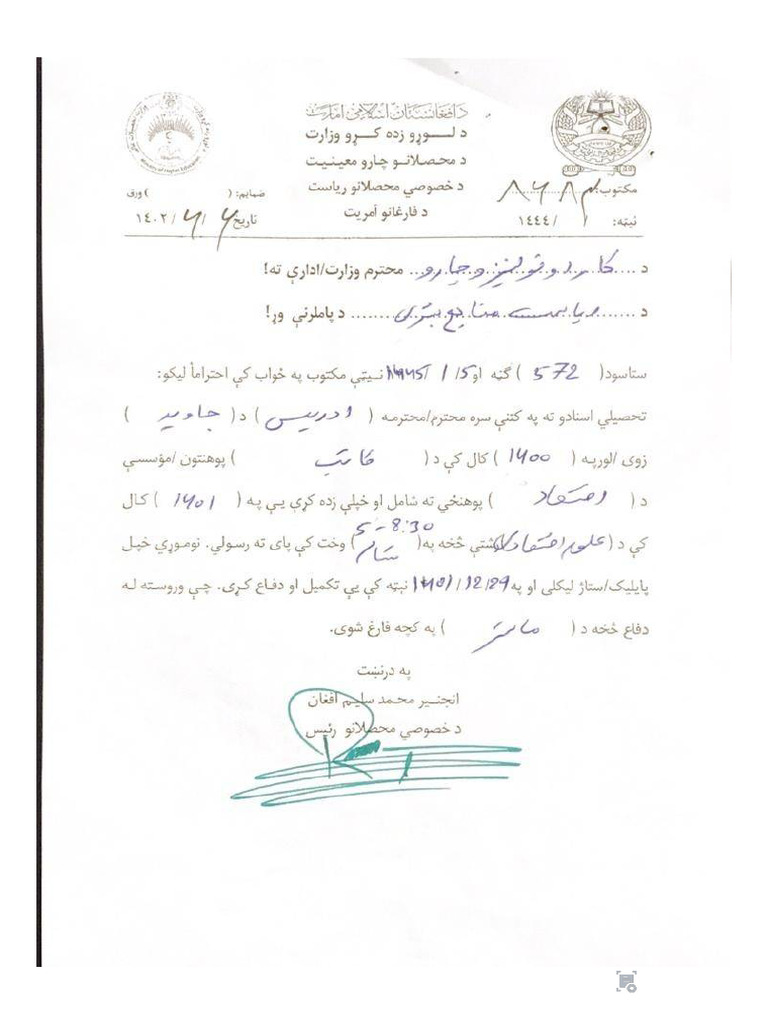 د افغانستان اسلامي امارت
د لـــوړو زده کــړو وزارت
د محصلانو چارو معینیت
د خصوصي محصلانو ریاست
د فارغانو آمریت
Ministry of Higher Education
مکتوب:
ضمایم: ( ) ورق
نېټه: / /۱۴۴۴
تاریخ ۴/ ۶/ ۱۴۰۲
د .... کار و و چارو .. محترم وزارت/ادارې ته!
د ...... ریاست منابع بشری ........ د پاملرنې وړ!
ستاسود( 572 ) ګڼه او 5/ 1 /۱۴۴۵ نـېټې مکتوب په ځواب کې احتراماً لیکو:
تحصیلي اسنادو ته په کتنې سره محترم/محترمه ( ادریس ) د( جاوید )
زوی /لورپه ( ۱۴۰۰ ) کال کې د( کاتب ) پوهنتون /مؤسسې
د ( اقتصاد ) پوهنځي ته شامل او خپلې زده کړې یـې پـه ( ۱۴۰۱ ) کـال
کې د( علوم اقتصادی ) څخه په( 5-8:30 ) وخت کې پای ته رسولي. نوموړي خپل
پایلیک/ستاژ لیکلی او په 29/ 12/ ۱۴۰۱ نېټه کې یې تکمیل او دفاع کـړی. چې وروسته لـه
دفاع څخه د ( ماستر ) په کچه فارغ شوی.
په درنښت
انجنـیر محمـد سلیـم افغان
د خصوصي محصلانو رئیس